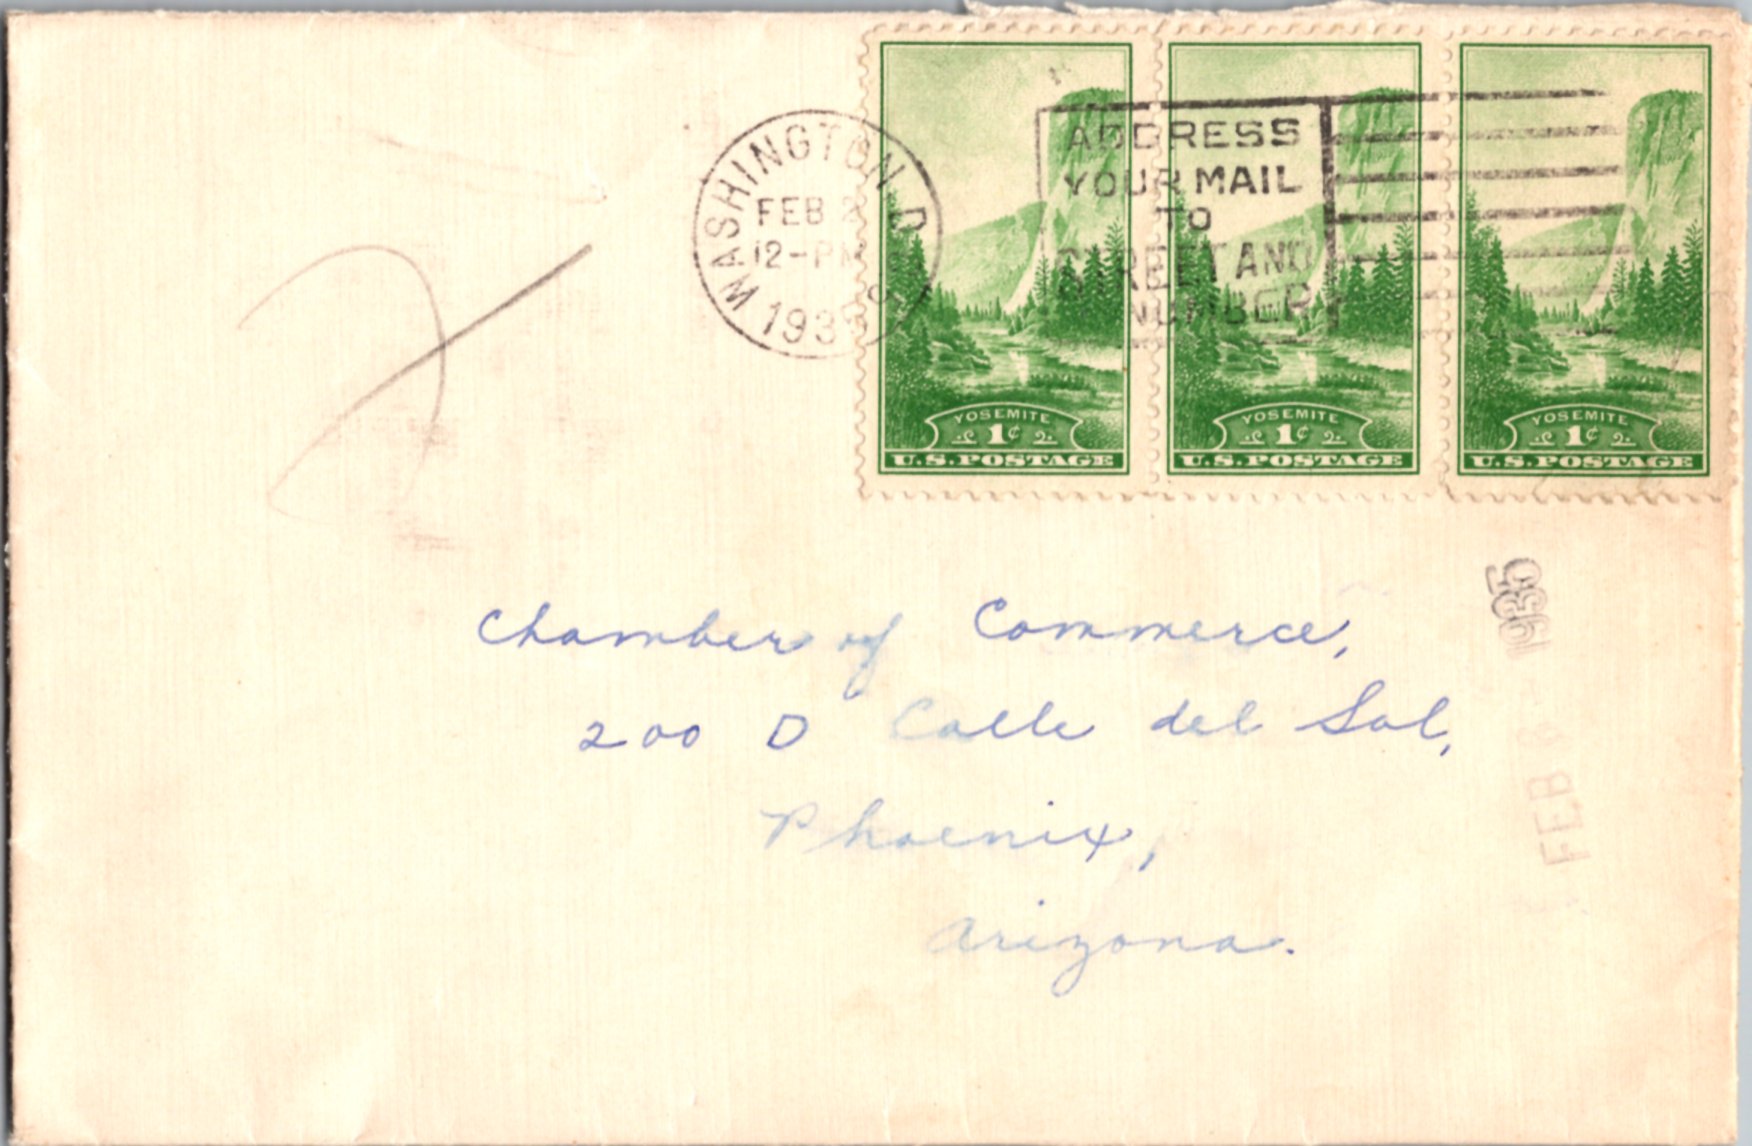 WASHINGTON, D.C.
FEB 2
12-PM
1935
ADDRESS
YOUR MAIL
TO
STREET AND
NUMBER
YOSEMITE
1¢
U.S. POSTAGE
YOSEMITE
1¢
U.S. POSTAGE
YOSEMITE
1¢
U.S. POSTAGE
Chamber of Commerce,
200 D Calle del Sol,
Phoenix,
Arizona.
FEB 6 1935